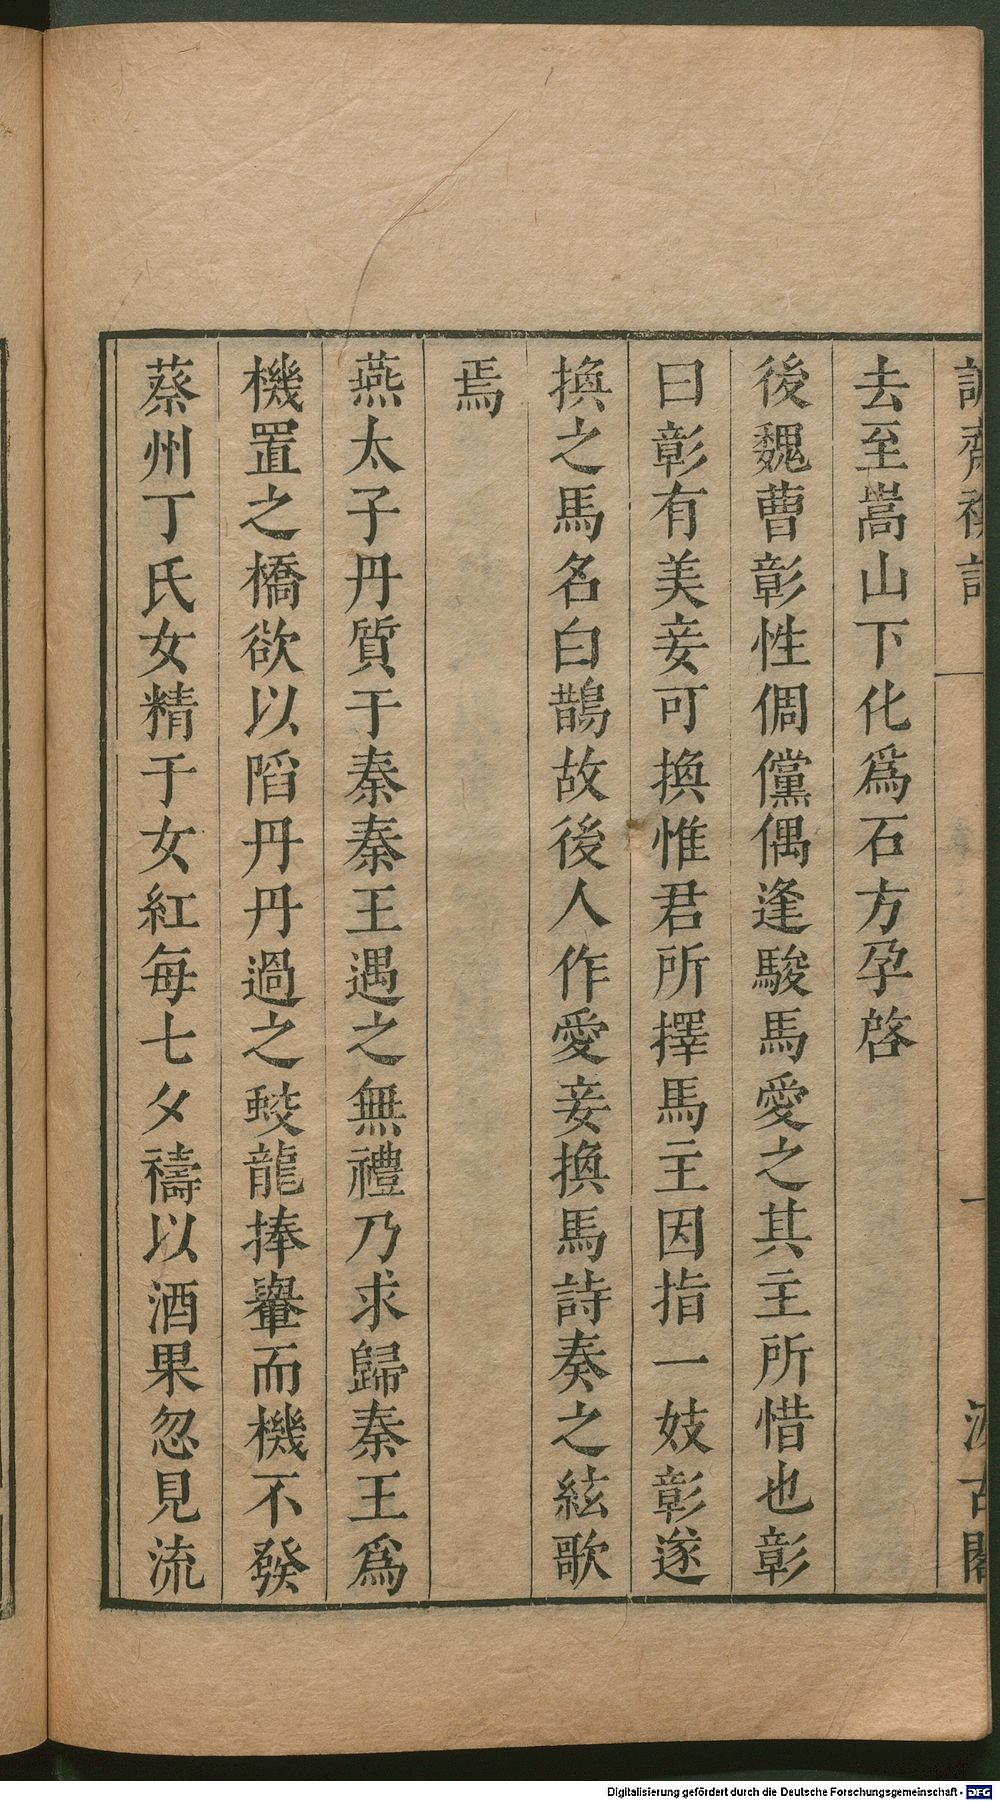 去至嵩山下化爲石方孕啓
後魏曹彰性倜儻偶逢駿馬愛之其主所惜也彰
曰彰有美妾可換惟君所擇馬主因指一妓彰遂
換之馬名白鵲故後人作愛妾換馬詩奏之絃歌
焉
燕太子丹質于秦秦王遇之無禮乃求歸秦王爲
機置之橋欲以陷丹丹過之蛟龍捧轝而機不發
蔡州丁氏女精于女紅每七夕禱以酒果忽見流
Digitalisierung gefördert durch die Deutsche Forschungsgemeinschaft - DFG